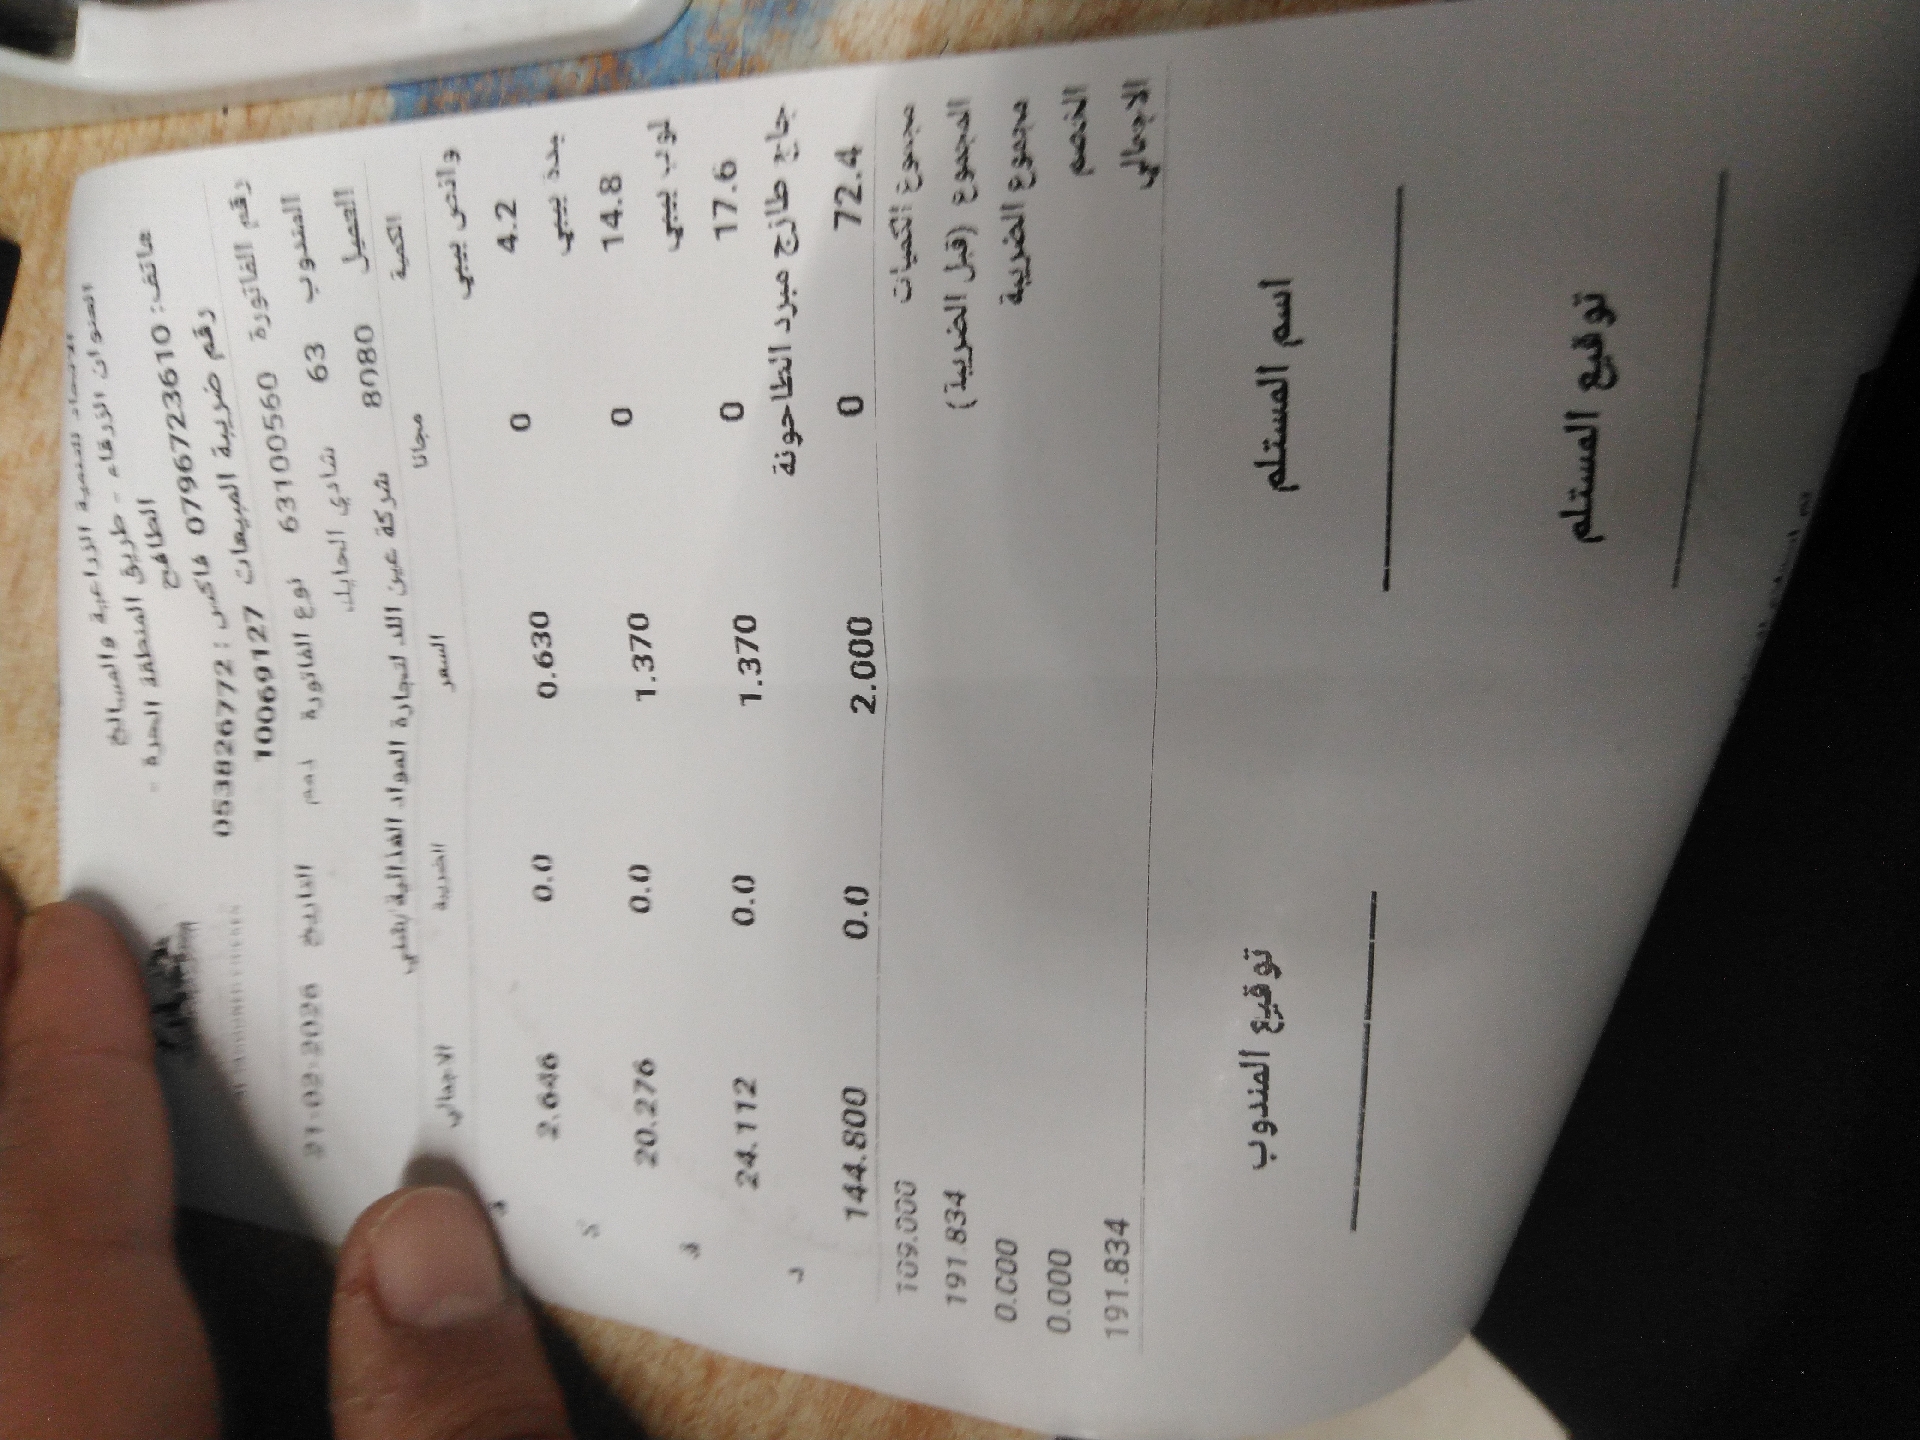 الاتحاد للتنمية الزراعية والمسالخ
العنوان الزرقاء - طريق المنطقة الحرة -
هاتف: 0796723610 فاكس: 053826772
رقم ضريبة المبيعات 10069127
رقم الفاتورة 63100560 نوع الفاتورة ذمم التاريخ
المندوب 63 شادي الحايك
العميل 8080 شركة عين الله لتجارة المواد الغذائية
الكمية مجانا السعر الضريبة الاجمالي
4.2 0 0.630 0.0 2.646
14.8 0 1.370 0.0 20.276
17.6 0 1.370 0.0 24.112
جاج طازج مبرد الطاحونة
72.4 0 2.000 0.0 144.800
مجموع الكميات 109.000
المجموع (قبل الضريبة) 191.834
مجموع الضريبة 0.000
الخصم 0.000
الاجمالي 191.834
اسم المستلم توقيع المندوب
توقيع المستلم